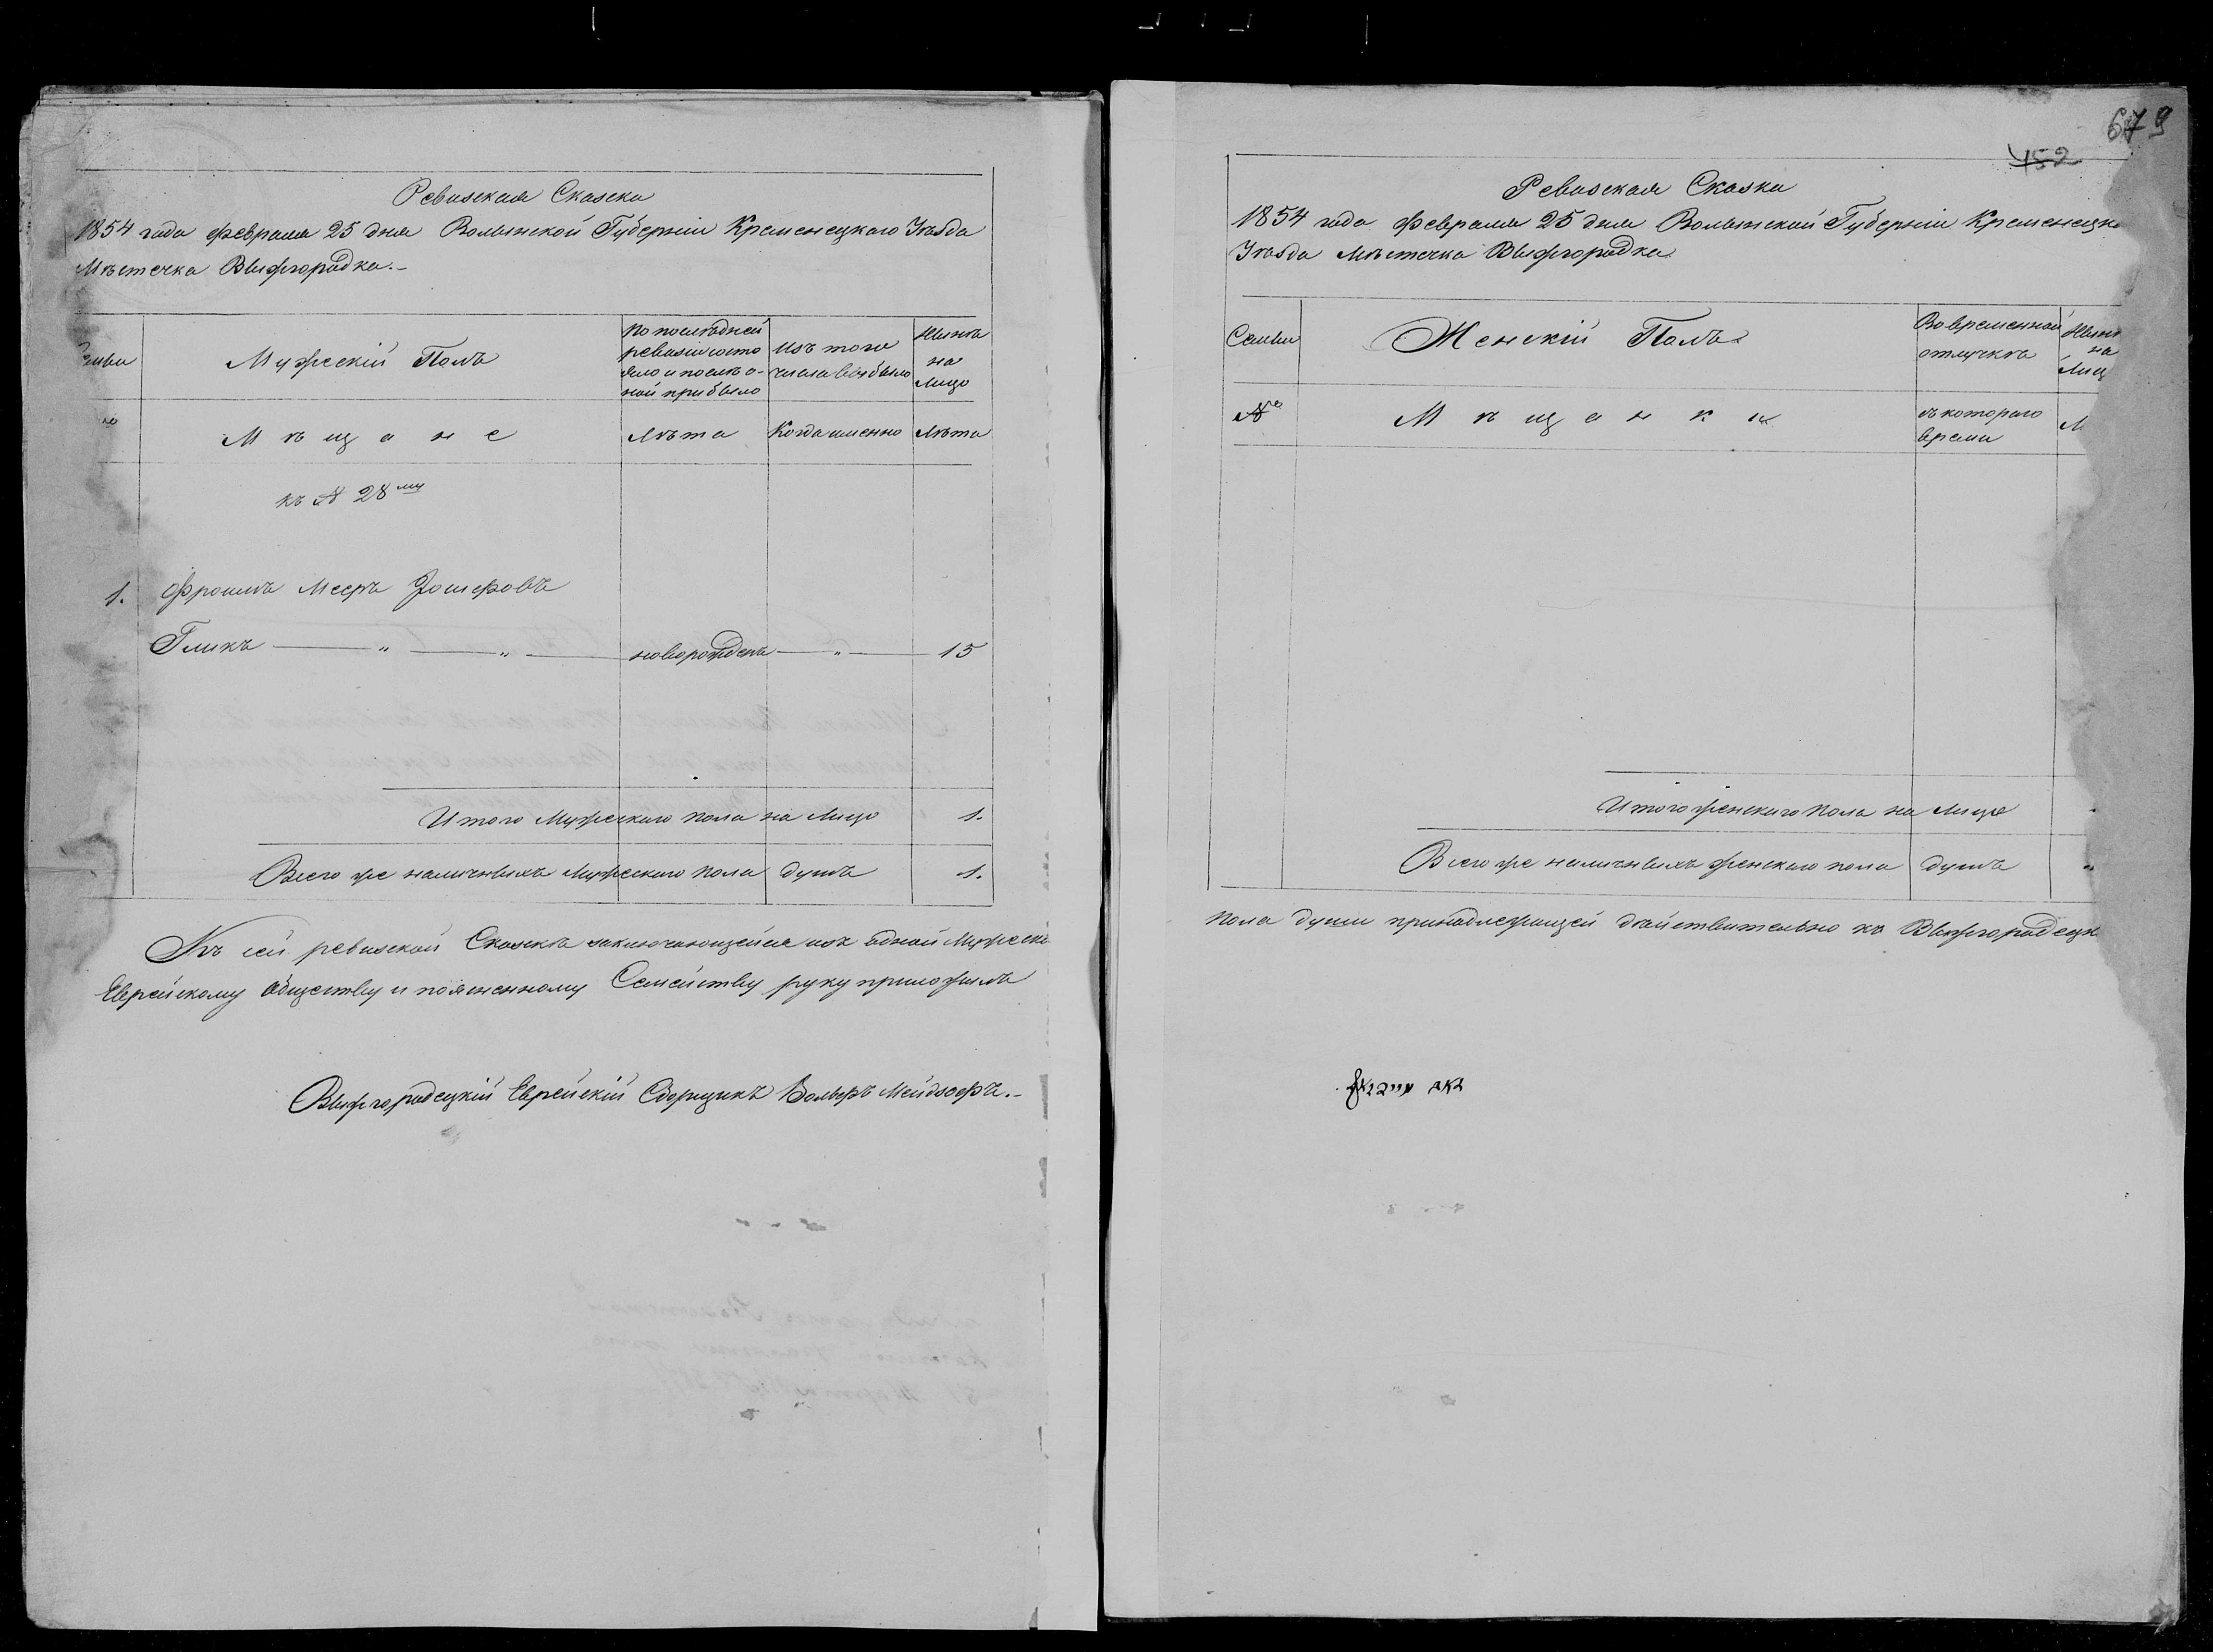 Ревизская Сказка
1854 года февраля 25 дня Волынской Губерніи Кременецкаго Уѣзда
Мѣстечка Выжгородка.-
Мужескій Полъ
по послѣдней
ревизіи состо
яло и послѣ о-
ной прибыло
Изъ того
числа выбыло
Нынѣ
на
лицо
Мѣщане
Лѣта
Когда именно
Лѣта
къ № 28му
1. Фроимъ Мееръ Іошефовъ
Гликъ — " — " — новорожденъ — " — 15
Итого Мужескаго пола на лицо 1.
Всего же наличныхъ Мужескаго пола душъ 1.
Къ сей ревизской Сказкѣ заключающейся изъ одной Мужеска
Еврейскому обществу и поясненному Семейству руку приложилъ
Выжгородецкій Еврейскій Сборщикъ
679
452
Ревизская Сказка
1854 года февраля 25 дня Волынской Губерніи Кременецка
Уѣзда мѣстечка Выжгородка
Семьи
Женскій Полъ
Во временной
отлучкѣ
Нын
на
лиц
№
Мѣщанки
съ котораго
времени
Итого женскаго пола на лице
Всего же наличныхъ женскаго пола душъ "
пола души принадлежащей дѣйствительно къ Выжгородецк